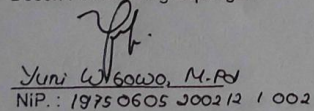 Yuni Wibowo, M.Pd
NiP.: 19750605 200212 1 002